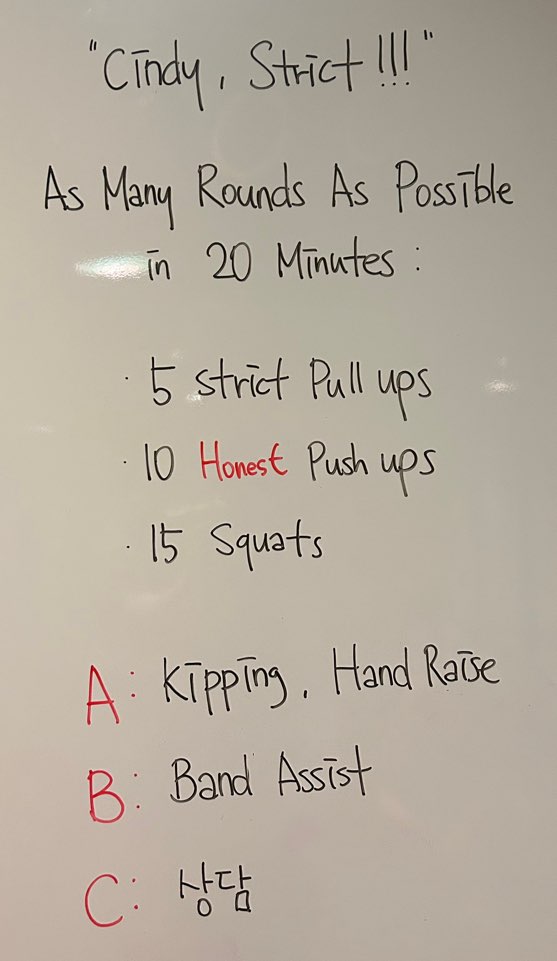 "Cindy, Strict!!!"
As Many Rounds As Possible
in 20 Minutes :
· 5 strict Pull ups
· 10 Honest Push ups
· 15 Squats
A: Kipping, Hand Raise
B: Band Assist
C: 상담